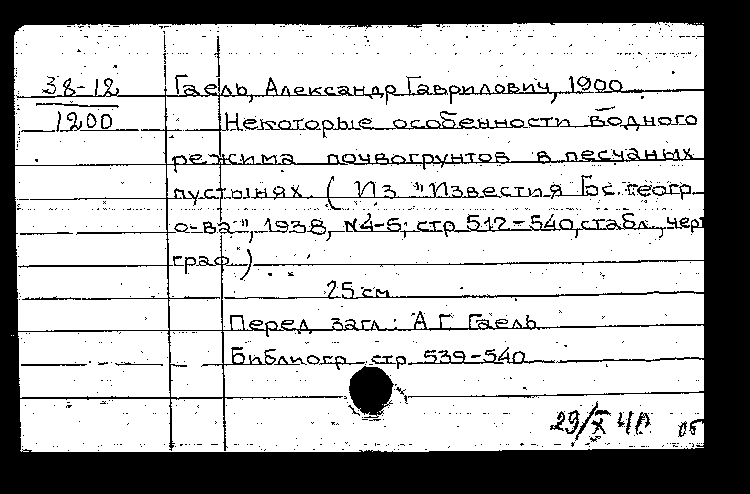 38-12
1200
Гаель, Александр Гаврилович, 1900
Некоторые особенности водного
режима почвогрунтов в песчаных
пустынях. (Из "Известия Гос. геогр.
о-ва", 1938, №4-5; стр 512-540, с табл., черт
граф.)
25 см
Перед загл.: А.Г. Гаель
Библиогр. стр. 539-540
29/X 40